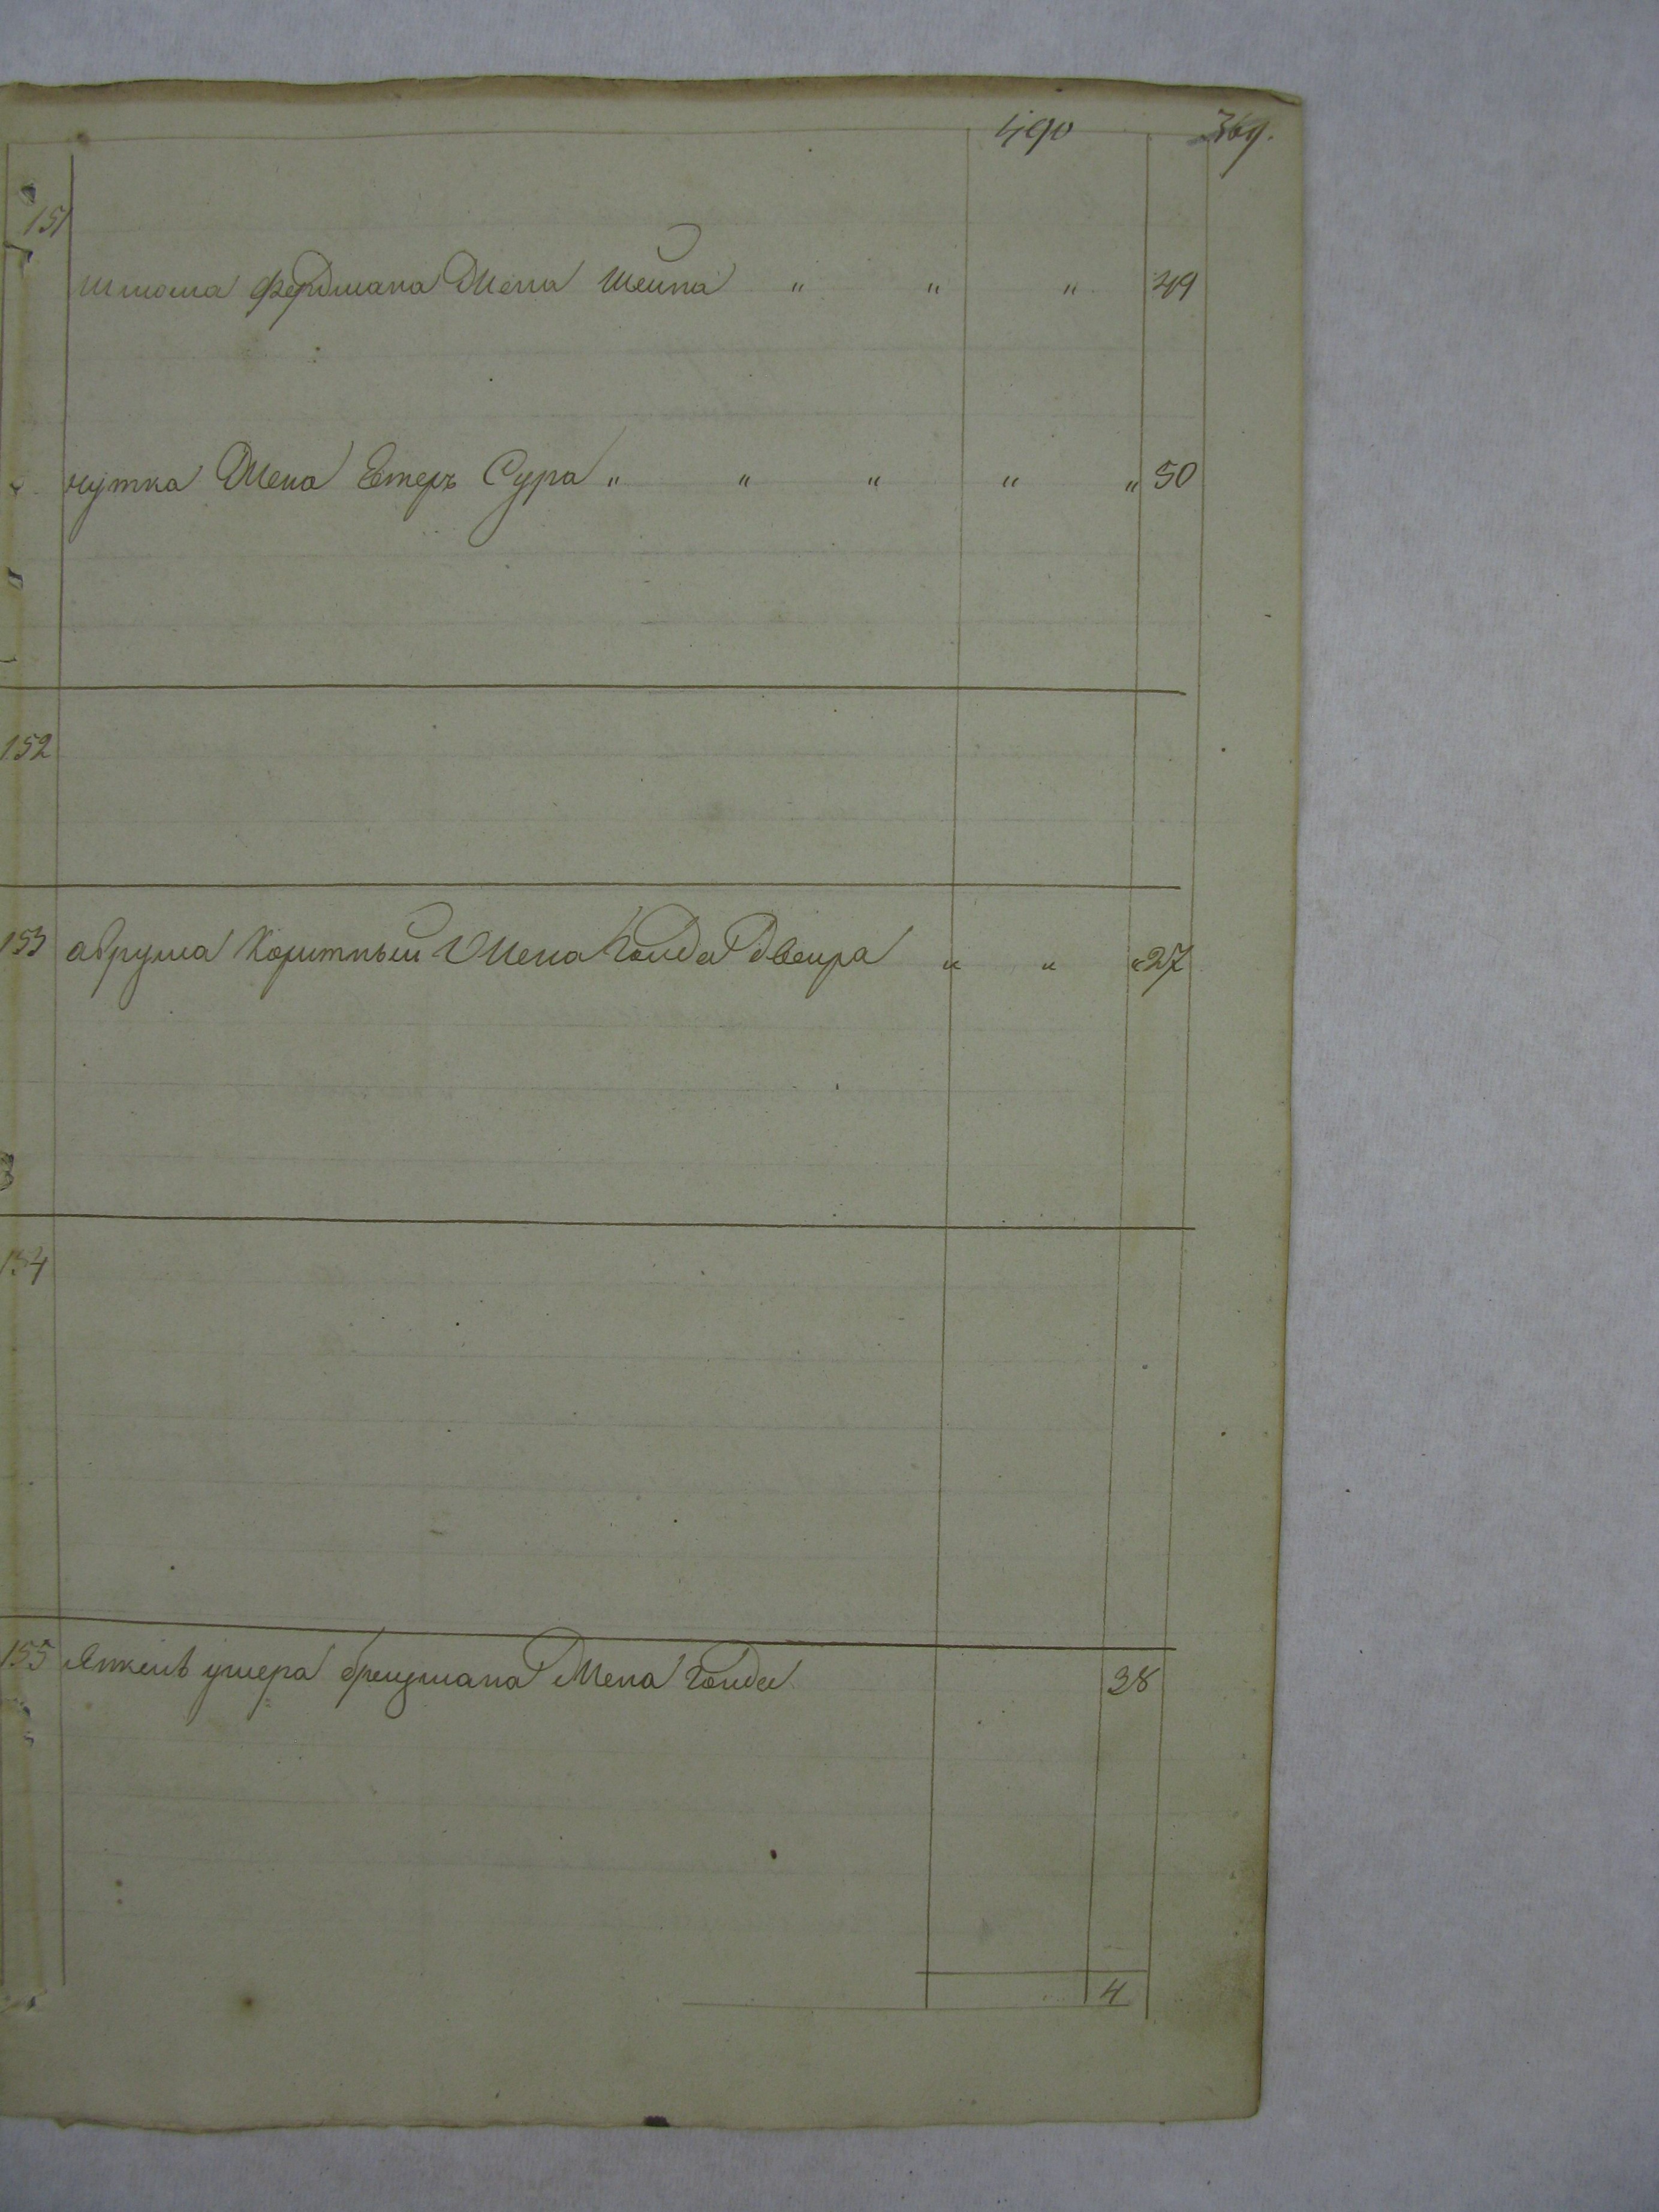 490 369.
151
Шмома Фердмана Жена Шейна " " " 49
нутка Жена Етеръ Сура " " " " " 50
152
153 абрума Коритный Жена Голда Двейра " " " 27
154
155 Янкель ушера брецмана Жена Голда 38
4